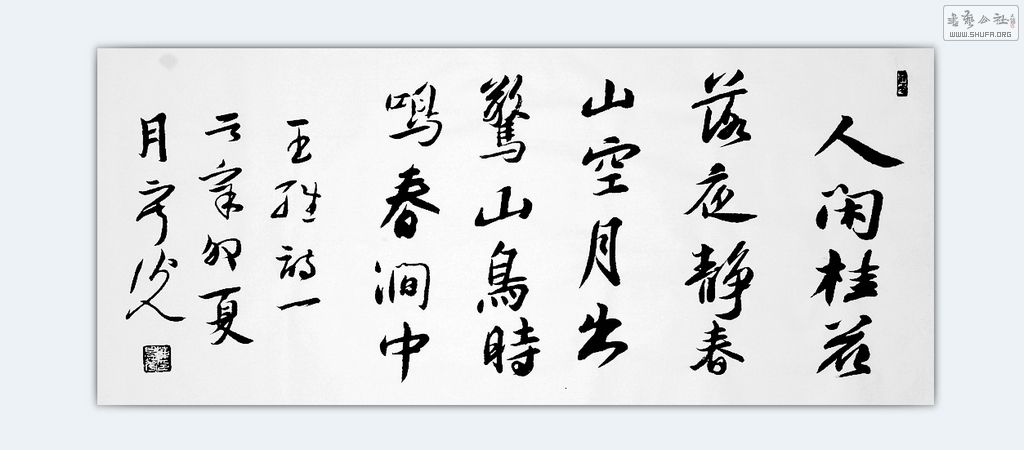 書藝公社
WWW.SHUFA.ORG
人闲桂花
落夜静春
山空月出
驚山鳥時
鳴春澗中
王維詩一
首辛卯夏
月